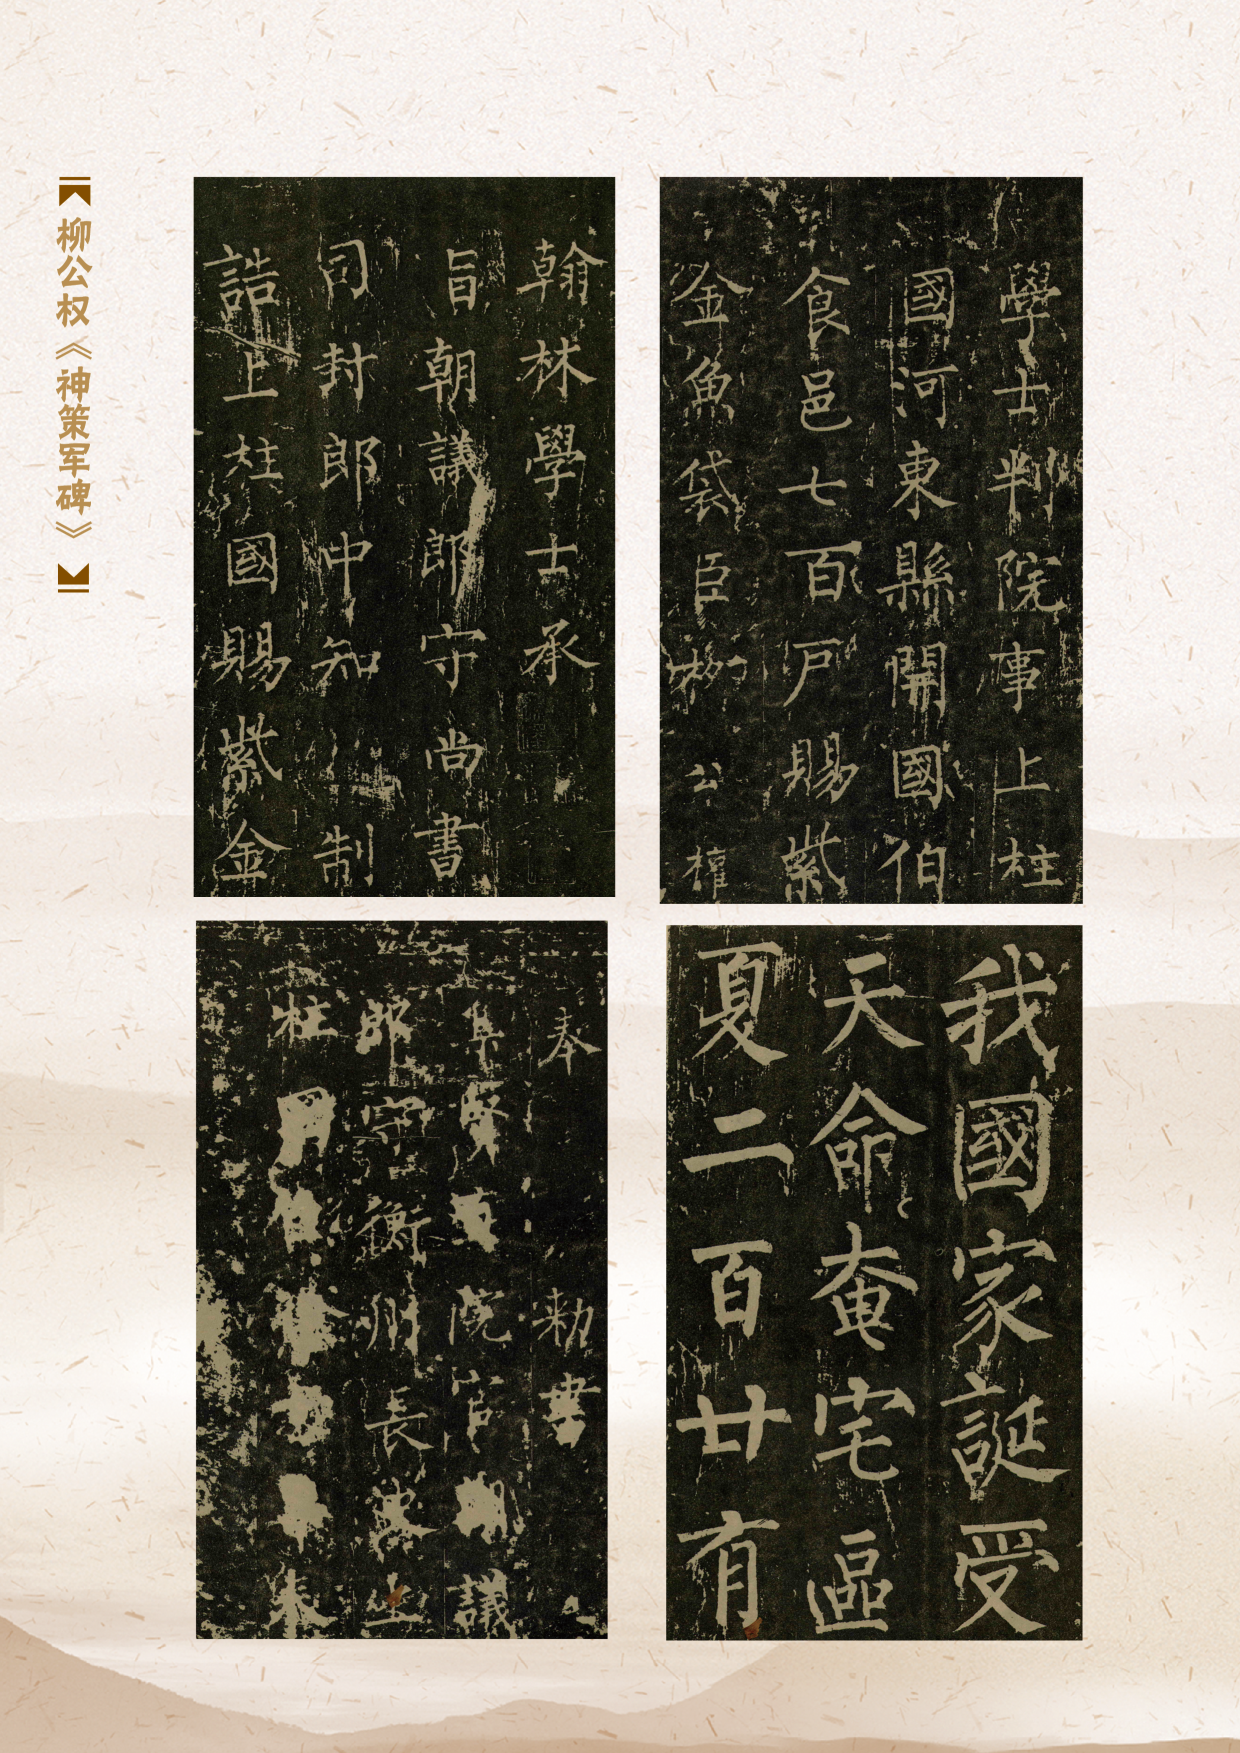 柳公权《神策军碑》
翰林學士承
旨朝議郎守尚書
司封郎中知制
誥上柱國賜紫金
學士判院事上柱
國河東縣開國伯
食邑七百戶賜紫
金魚袋臣柳公權
奉敕書
集賢直院官朝議
郎守衡州長史上
柱
我國家誕受
天命奄宅區
夏二百廿有